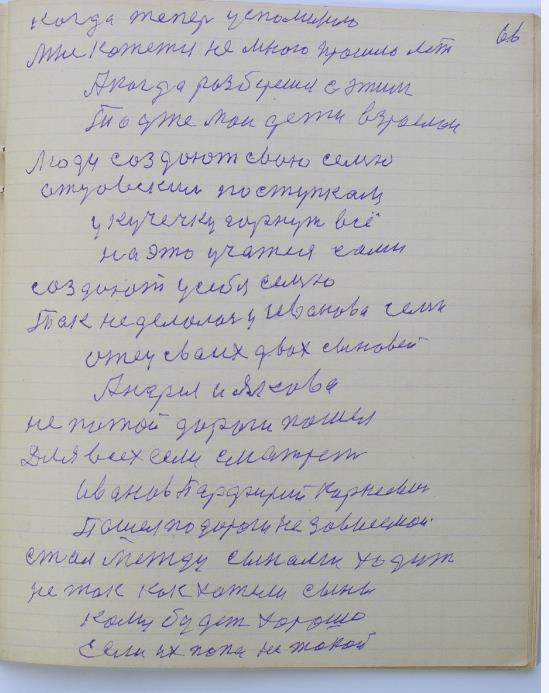 66
когда тепер успомираю
Мне кажется не много прошло лет
А когда разбереш с этим
То уже мои дети взрослыи
Люди создоют свою семю
отцовским поступкам
у кучечку горнут всё
на это учатся сами
создоют у себя семю
Так неделолось у Иванова семи
отец сваих двох сыновей
Андрея и Якова
не по той дороги пошел
Для всех если сматрет
Иванов Парфирий Корнеевич
Пошел по дороги не зависемой
стал между сынами ходит
не так как хотели сыны
Кому будет хорошо
если их папа не такой